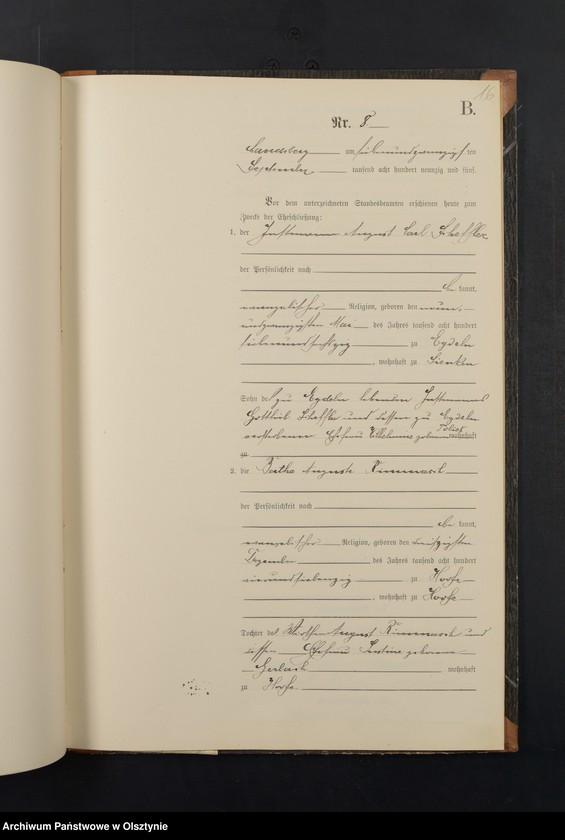 16
B.
Nr. 8
Landsberg am siebenundzwanzigsten
September tausend acht hundert neunzig und fünf.
Vor dem unterzeichneten Standesbeamten erschienen heute zum
Zwecke der Eheschließung:
1. der Instmann August Carl Scheffler
der Persönlichkeit nach
be kannt,
evangelischer Religion, geboren den neun-
undzwanzigsten Mai des Jahres tausend acht hundert
siebenundsechzig zu Eydeln
, wohnhaft zu
Sohn des zu Eydeln lebenden Instmanns
Gottlieb Scheffler und dessen zu Eydeln
verstorbenen Ehefrau Wilhelmine geborenen
wohnhaft
zu
2. die Bertha Auguste
der Persönlichkeit nach
be kannt,
evangelischer Religion, geboren den dreißigsten
Dezember des Jahres tausend acht hundert
vierundsiebenzig zu Hoofe
, wohnhaft zu Hoofe
Tochter des Wirthen August und
dessen Ehefrau Justine geborenen
Gerlach wohnhaft
zu Hoofe
Archiwum Państwowe w Olsztynie